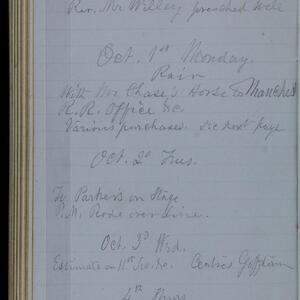 Rev. Mr Willey preached well
Oct. 1st Monday.
Rain
With Mr Chase's Horse to Manchest
R.R. Office &c.
Various purchased. See next page
Oct. 2d Tues.
To Parker's on Stage
P.M. Rode over Line.
Oct. 3d Wed.
Estimate on 11th Sec.
4th Thurs